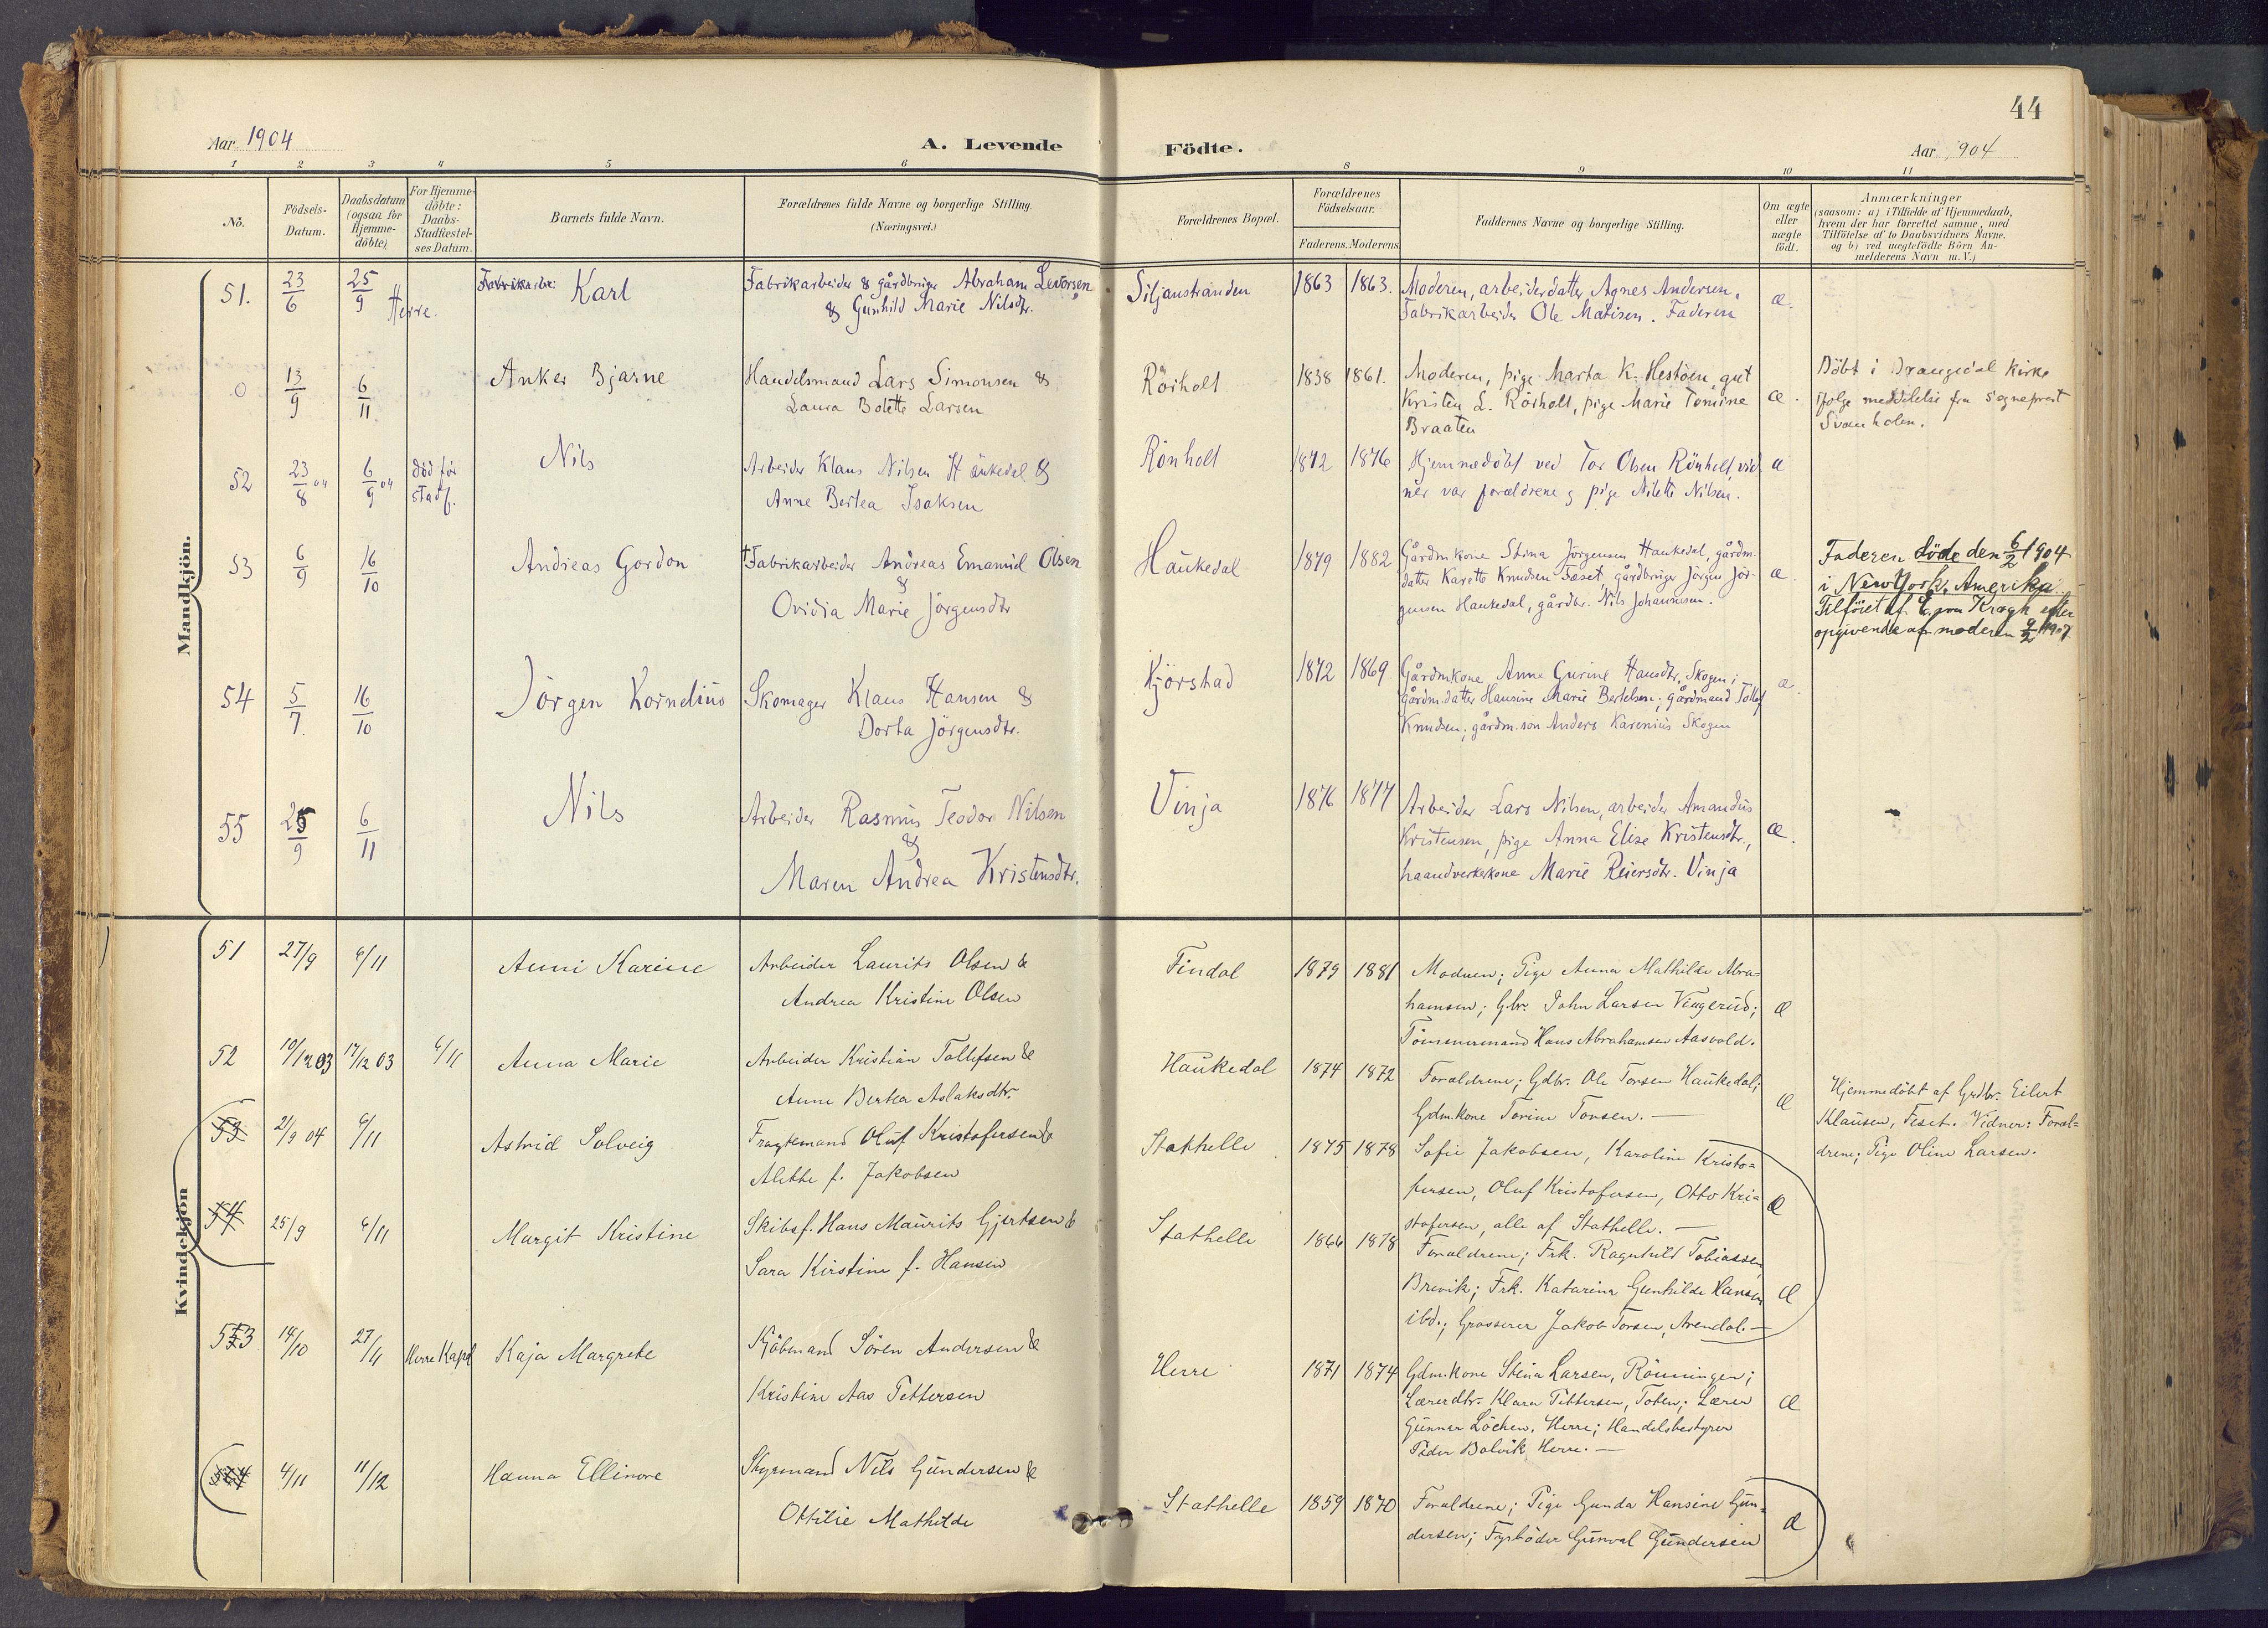 44
Aar 1904
A. Levende
Födte.
Aar 1904
1 2 3 4 5 6 8 9 10 11
No.
Födsels-
Datum.
Daabsdatum
(ogsaa for
Hjemme-
döbte)
For Hjemme-
döbte:
Daabs-
Stadfæstel-
ses Datum.
Barnets fulde Navn.
Forældrenes fulde Navne og borgerlige Stilling.
(Næringsvei.)
Forældrenes Bopæl.
Forældrenes
Födselsaar.
Faderens. Moderens
Faddernes Navne og borgerlige Stilling.
Om ægte
eller
uægte
födt.
Anmærkninger
(saasom: a) i Tilfælde af Hjemmedaab,
hvem der har forrettet samme, med
Tilföielse af to Daabsvidners Navne.
og b) ved uægtefödte Börn An-
melderens Navn m. V.)
Mandkjön.
51. 23/6 25/9 Herre. Karl
Fabrikarbeider & gårdbruger Abraham Levorsen
& Gunhild Marie Nilsdtr.
Siljanstranden 1863 1863.
Moderen, arbeiderdatter Agnes Andersen,
Fabrikarbeider Ole Matisen. Faderen
æ.
0 13/9 6/11 Anker Bjarne
Handelsmand Lars Simonsen &
Laura Bolette Larsen
Rörholt 1838 1861.
Moderen, pige Marta K. Hestöen, gut
Kristen L. Rörholt, pige Marie Tomine
Braaten
æ.
Döbt i Drangedal Kirke
ifölge meddelelse fra sogneprest
Svanholm.
52 23/8 04 6/9 04 död för
stadf.
Nils
Arbeider Klaus Nilsen Haukedal &
Anne Bertea Isaksen
Rönholt 1872 1876
Hjemmedöbt ved Tor Olsen Rönholt, vid
ner var forældrene g pige Nilette Nilsen.
æ
53 6/9 16/10 Andreas Gordon
†Fabrikarbeider Andreas Emanuel Olsen
&
Ovidia Marie Jörgensdtr
Haukedal 1879 1882
Gårdm.kone Stina Jörgensen Haukedal, gårdm.
datter Karette Knudsen Fæset, gårdbruger Jörgen Jör-
gensen Haukedal, gårdbr. Nils Johannesen.
æ.
Faderen döde den 6/2 1904
i New York, Amerika
Tilföiet af E. von Krogh efter
opgivende af moderen 9/2 1907
54 5/7. 16/10 Jörgen Kornelius
Skomager Klaus Hansen &
Dorta Jörgensdtr.
Kjörstad 1872 1869
Gårdmkone Anne Gurine Hansdtr. Skogen;
gårdm.datter Hansine Marie Bertelsen; gårdmand Tollef
Knudsen; gårdm.sön Anders Karenius Skogen
æ.
55 25/9 6/11 Nils
Arbeider Rasmus Teodor Nilsen
&
Maren Andrea Kristensdtr.
Vinja 1876 1877
Arbeider Lars Nilsen, arbeider Amandus
Kristensen, pige Anna Elise Kristensdtr.,
haandverkerkone Marie Reiersdtr. Vinja
æ.
Kvindekjön
51 27/9 6/11 Anni Karine
Arbeider Laurits Olsen &
Andrea Kristine Olsen
Findal 1879 1881
Moderen; Pige Anna Mathilde Abra-
hamsen; Gbr. John Larsen Vingerud;
Tömmermand Hans Abrahamsen Aasvold.
æ
52 10/12 03 17/12 03 6/11 Anna Marie
Arbeider Kristian Tollefsen &
Anne Bertea Aslaksdtr.
Haukedal 1874 1872
Forældrene; Gdbr. Ole Torsen Haukedal;
Gdm.kone Torine Torsen. —
æ
Hjemmedöbt af Grdbr. Eilert
Klausen, Feset. Vidner: Foræl-
drene; Pige Oline Larsen.
53 2/9 04 6/11 Astrid Solveig
Fragtemand Oluf Kristofersen &
Alette f. Jakobsen
Stathelle 1875 1878
Sofie Jakobsen, Karoline Kristo-
fersen, Oluf Kristofersen, Otto Kri-
stofersen, alle af Stathelle. —
æ
54 25/9 6/11 Margit Kristine
Skibsf. Hans Maurits Gjertsen &
Sara Kirstine f. Hansen
Stathelle 1866 1878
Forældrene; Frk. Ragnhild Tobiassen
Brevik; Frk. Katarina Gunhilde Hansen
ibd.; Grosserer Jakob Torsen, Arendal. —
æ
53 14/10 27/11 Herre Kapel Kaja Margrete
Kjöbmand Sören Andersen &
Kristine Aas Pettersen
Herre 1871 1874
Gdm.kone Stina Larsen, Rönningen;
Lærerdtr. Klara Pettersen, Toten; Lærer
Gunnar Löchen, Herre; Handelsbestyrer
Peder Bolvik, Herre. —
æ
54 4/11 11/12 Hanna Ellinore
Styrmand Nils Gundersen &
Ottilie Mathilde
Stathelle 1859 1870
Forældrene; Pige Gunda Hansine Gun-
dersen; Fyrböder Gunval Gundersen
æ